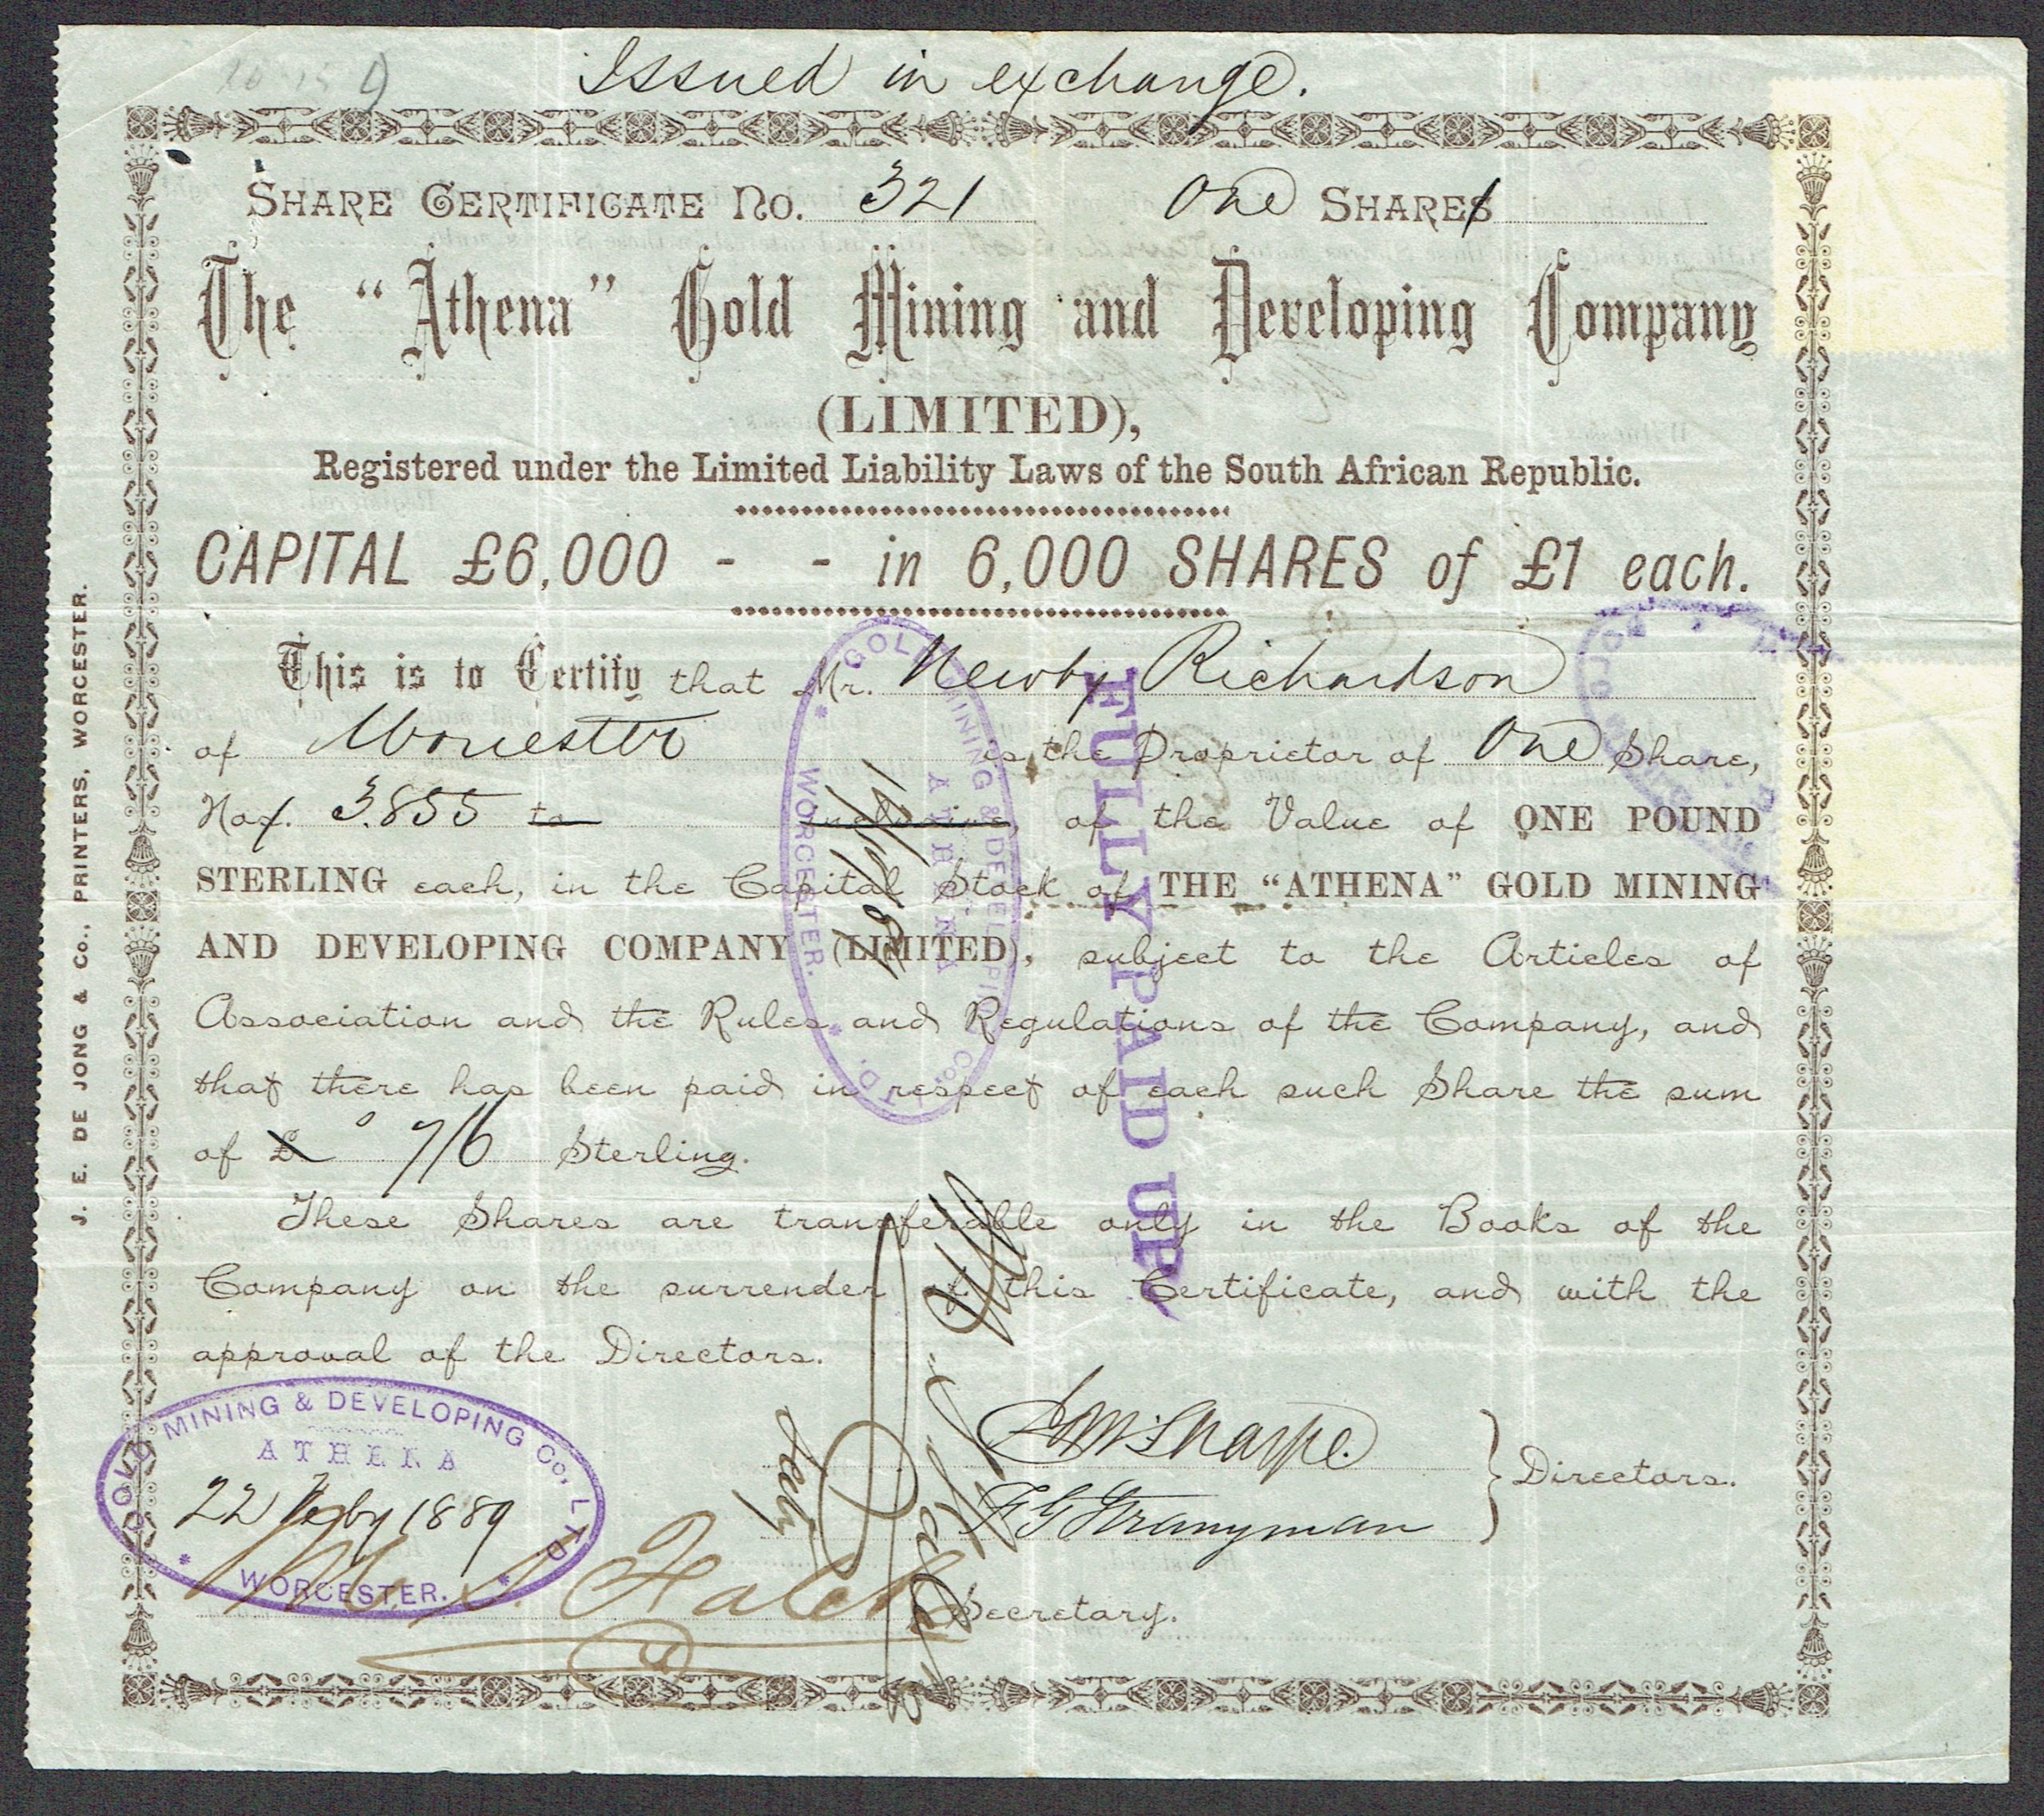 Issued in exchange.
SHARE CERTIFICATE No. 321 One SHARES
The "Athena" Gold Mining and Developing Company
(LIMITED),
Registered under the Limited Liability Laws of the South African Republic.
CAPITAL £6,000 - - in 6,000 SHARES of £1 each.
This is to Certify that Mr. Newby Richardson
of Worcester is the Proprietor of One Share,
Nos. 3855 to inclusive, of the Value of ONE POUND
STERLING each, in the Capital Stock of THE "ATHENA" GOLD MINING
AND DEVELOPING COMPANY (LIMITED), subject to the Articles of
Association and the Rules and Regulations of the Company, and
that there has been paid in respect of each such Share the sum
of £ 7/6 Sterling.
These Shares are transferable only in the Books of the
Company on the surrender of this Certificate, and with the
approval of the Directors.
Directors.
Secretary.
GOLD MINING & DEVELOPING Co. LTD.
ATHENA
22 Feby 1889
WORCESTER.
GOLD MINING & DEVELOPING Co. LTD.
ATHENA
WORCESTER.
FULLY PAID UP
Secty
J. E. DE JONG & Co., PRINTERS, WORCESTER.